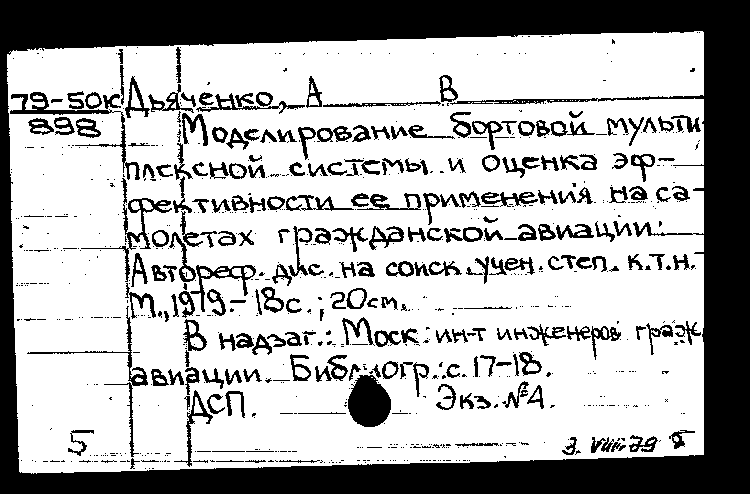 79-50к Дьяченко, А В
898
Моделирование бортовой мульти
плексной системы и оценка эф-
фективности ее применения на са-
молетах гражданской авиации:
Автореф. дис. на соиск. учен. степ. к.т.н. -
М., 1979. - 18с.; 20см.
В надзаг.: Моск. ин-т инженеров гражд.
авиации. Библиогр.: с. 17-18.
ДСП. Экз. №4.
5 3. VIII. 79